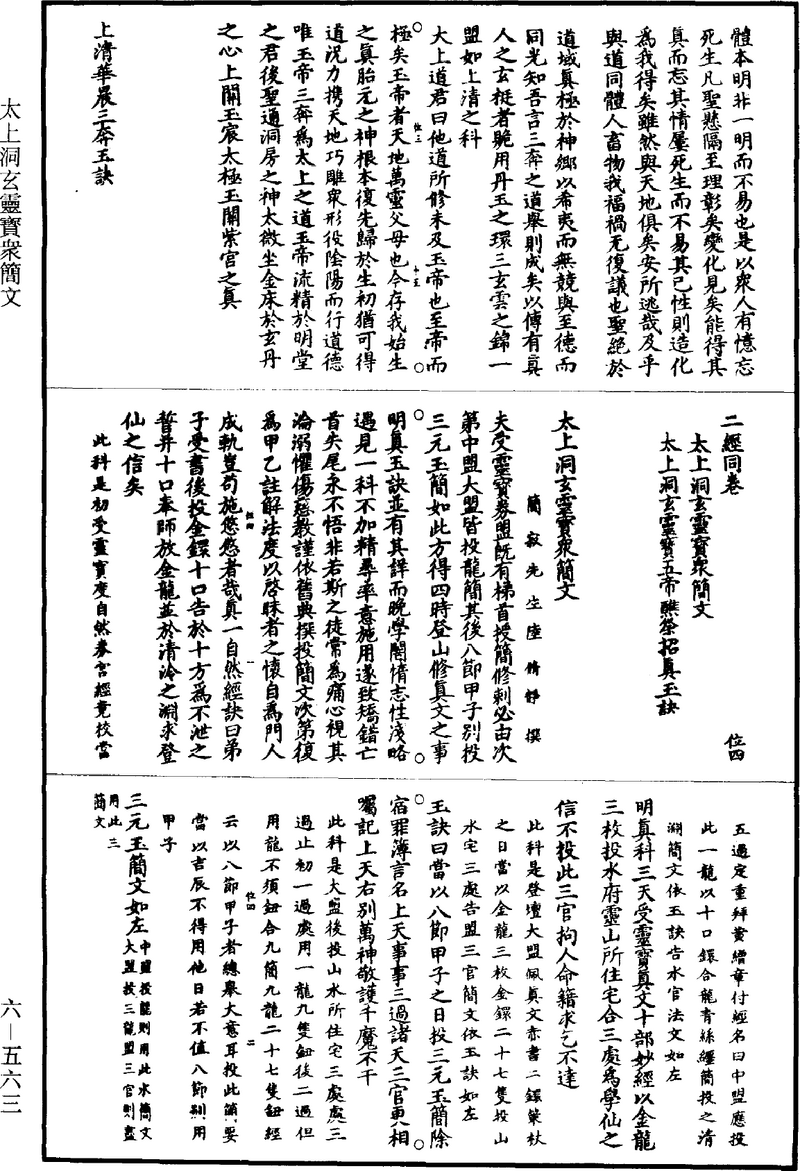 體本明非一明而不易也是以眾人有憶忘
死生凡聖懸隔至理彰矣變化見矣能得其
真而忘其情屢死生而不易其已性則造化
為我得矣雖然與天地俱矣安所逃哉及乎
與道同體人畜物我福禍无復議也聖絕於
道域真極於神鄉以希夷而無競與至德而
同光知吾言三奔之道舉則成矣以傳有真
人之玄挺者賜用丹玉之環三玄雲之錦一
盟如上清之科
大上道君曰他道所修未及玉帝也至帝而
極矣玉帝者天地萬靈父母也令存我始生
位三
十五
之真胎元之神根本復先歸於生初猶可得
道況力攜天地巧雕眾形役陰陽而行道德
唯玉帝三奔為太上之道玉帝流精於明堂
之君後聖通洞房之神太微坐金床於玄丹
之心上開玉宸太極玉闕紫宮之真
上清華晨三奔玉訣
二經同卷
位四
太上洞玄靈寶眾簡文
太上洞玄靈寶五帝醮祭招真玉訣
太上洞玄靈寶眾簡文
簡寂先生陸脩靜撰
夫受靈寶券盟既有梯首授簡修刺必由次
第中盟大盟皆投龍簡其後八節甲子別投
三元玉簡如此方得四時登山修真文之事
明真玉訣並有其詳而晚學闇惰志性淺略
遇見一科不加精尋率意施用遂致矯錯亡
首失尾永不悟非若斯之徒常為痛心視其
淪溺懼傷慈教謹依舊典撰投簡文次第復
為甲乙註解法度以啓昧者之懷自為門人
成軌豈苟施悠悠者哉真一自然經訣曰弟
位四
一
子受書後投金鐶十口告於十方為不泄之
誓并十口奉師放金龍並於清泠之淵求登
仙之信矣
此科是初受靈寶度自然券言經竟校當
五過定重拜黃繒章付經名曰中盟應投
此一龍以十口鐶合龍青絲纏簡投之清
淵簡文依玉訣告水官法文如左
明真科三天受靈寶真文十部妙經以金龍
三枚投水府靈山所住宅合三處為學仙之
信不投此三官拘人命籍求乞不達
此科是登壇大盟佩真文赤書二籙策杖
之日當以金龍三枚金鐶二十七隻投山
水宅三處告盟三官簡文依玉訣如左
玉訣曰當以八節甲子之日投三元玉簡除
宿罪簿言名上天事事三過諸天三官更相
囑記上天右別萬神敬護千魔不干
此科是大盟後投山水所住宅三處處三
過止初一過處用一龍九隻鈕後二過但
用龍不須鈕合九簡九龍二十七隻鈕經
位四
二
云以八節甲子者總舉大意耳投此簡要
當以吉辰不得用他日若不值八節則用
甲子
三元玉簡文如左中盟投龍則用此水簡文
大盟投三龍盟三官則盡
用此三
簡文
太上洞玄靈寶眾簡文
六—五六三